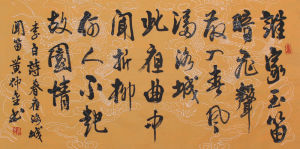 誰家玉笛
暗飛聲
散入春風
滿洛城
此夜曲中
聞折柳
何人不起
故園情
李白詩春夜洛城
聞笛 黄仲